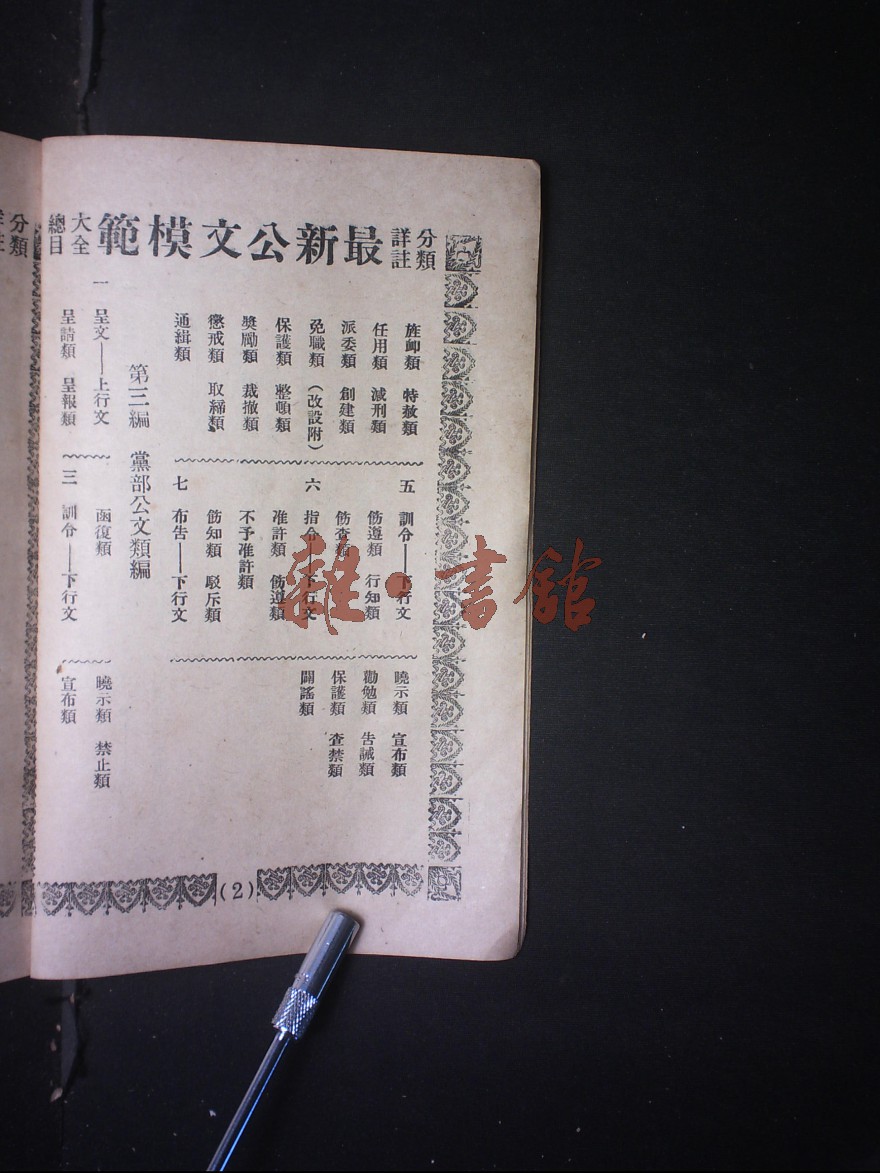 分類
詳註
最新公文模範
大全
總目
旌卹類 特赦類
任用類 減刑類
派委類 創建類
免職類 (改設附)
保護類 整頓類
獎勵類 裁撤類
懲戒類 取締類
通緝類
五 訓令——下行文
飭遵類 行知類
飭查類
六 指令——下行文
准許類 飭遵類
不予准許類
飭知類 駁斥類
七 布告——下行文
曉示類 宣布類
勸勉類 告誡類
保護類 查禁類
闢謠類
第三編 黨部公文類編
一 呈文——上行文
呈請類 呈報類
函復類
三 訓令——下行文
曉示類 禁止類
宣布類
(2)
分類
雜·書館